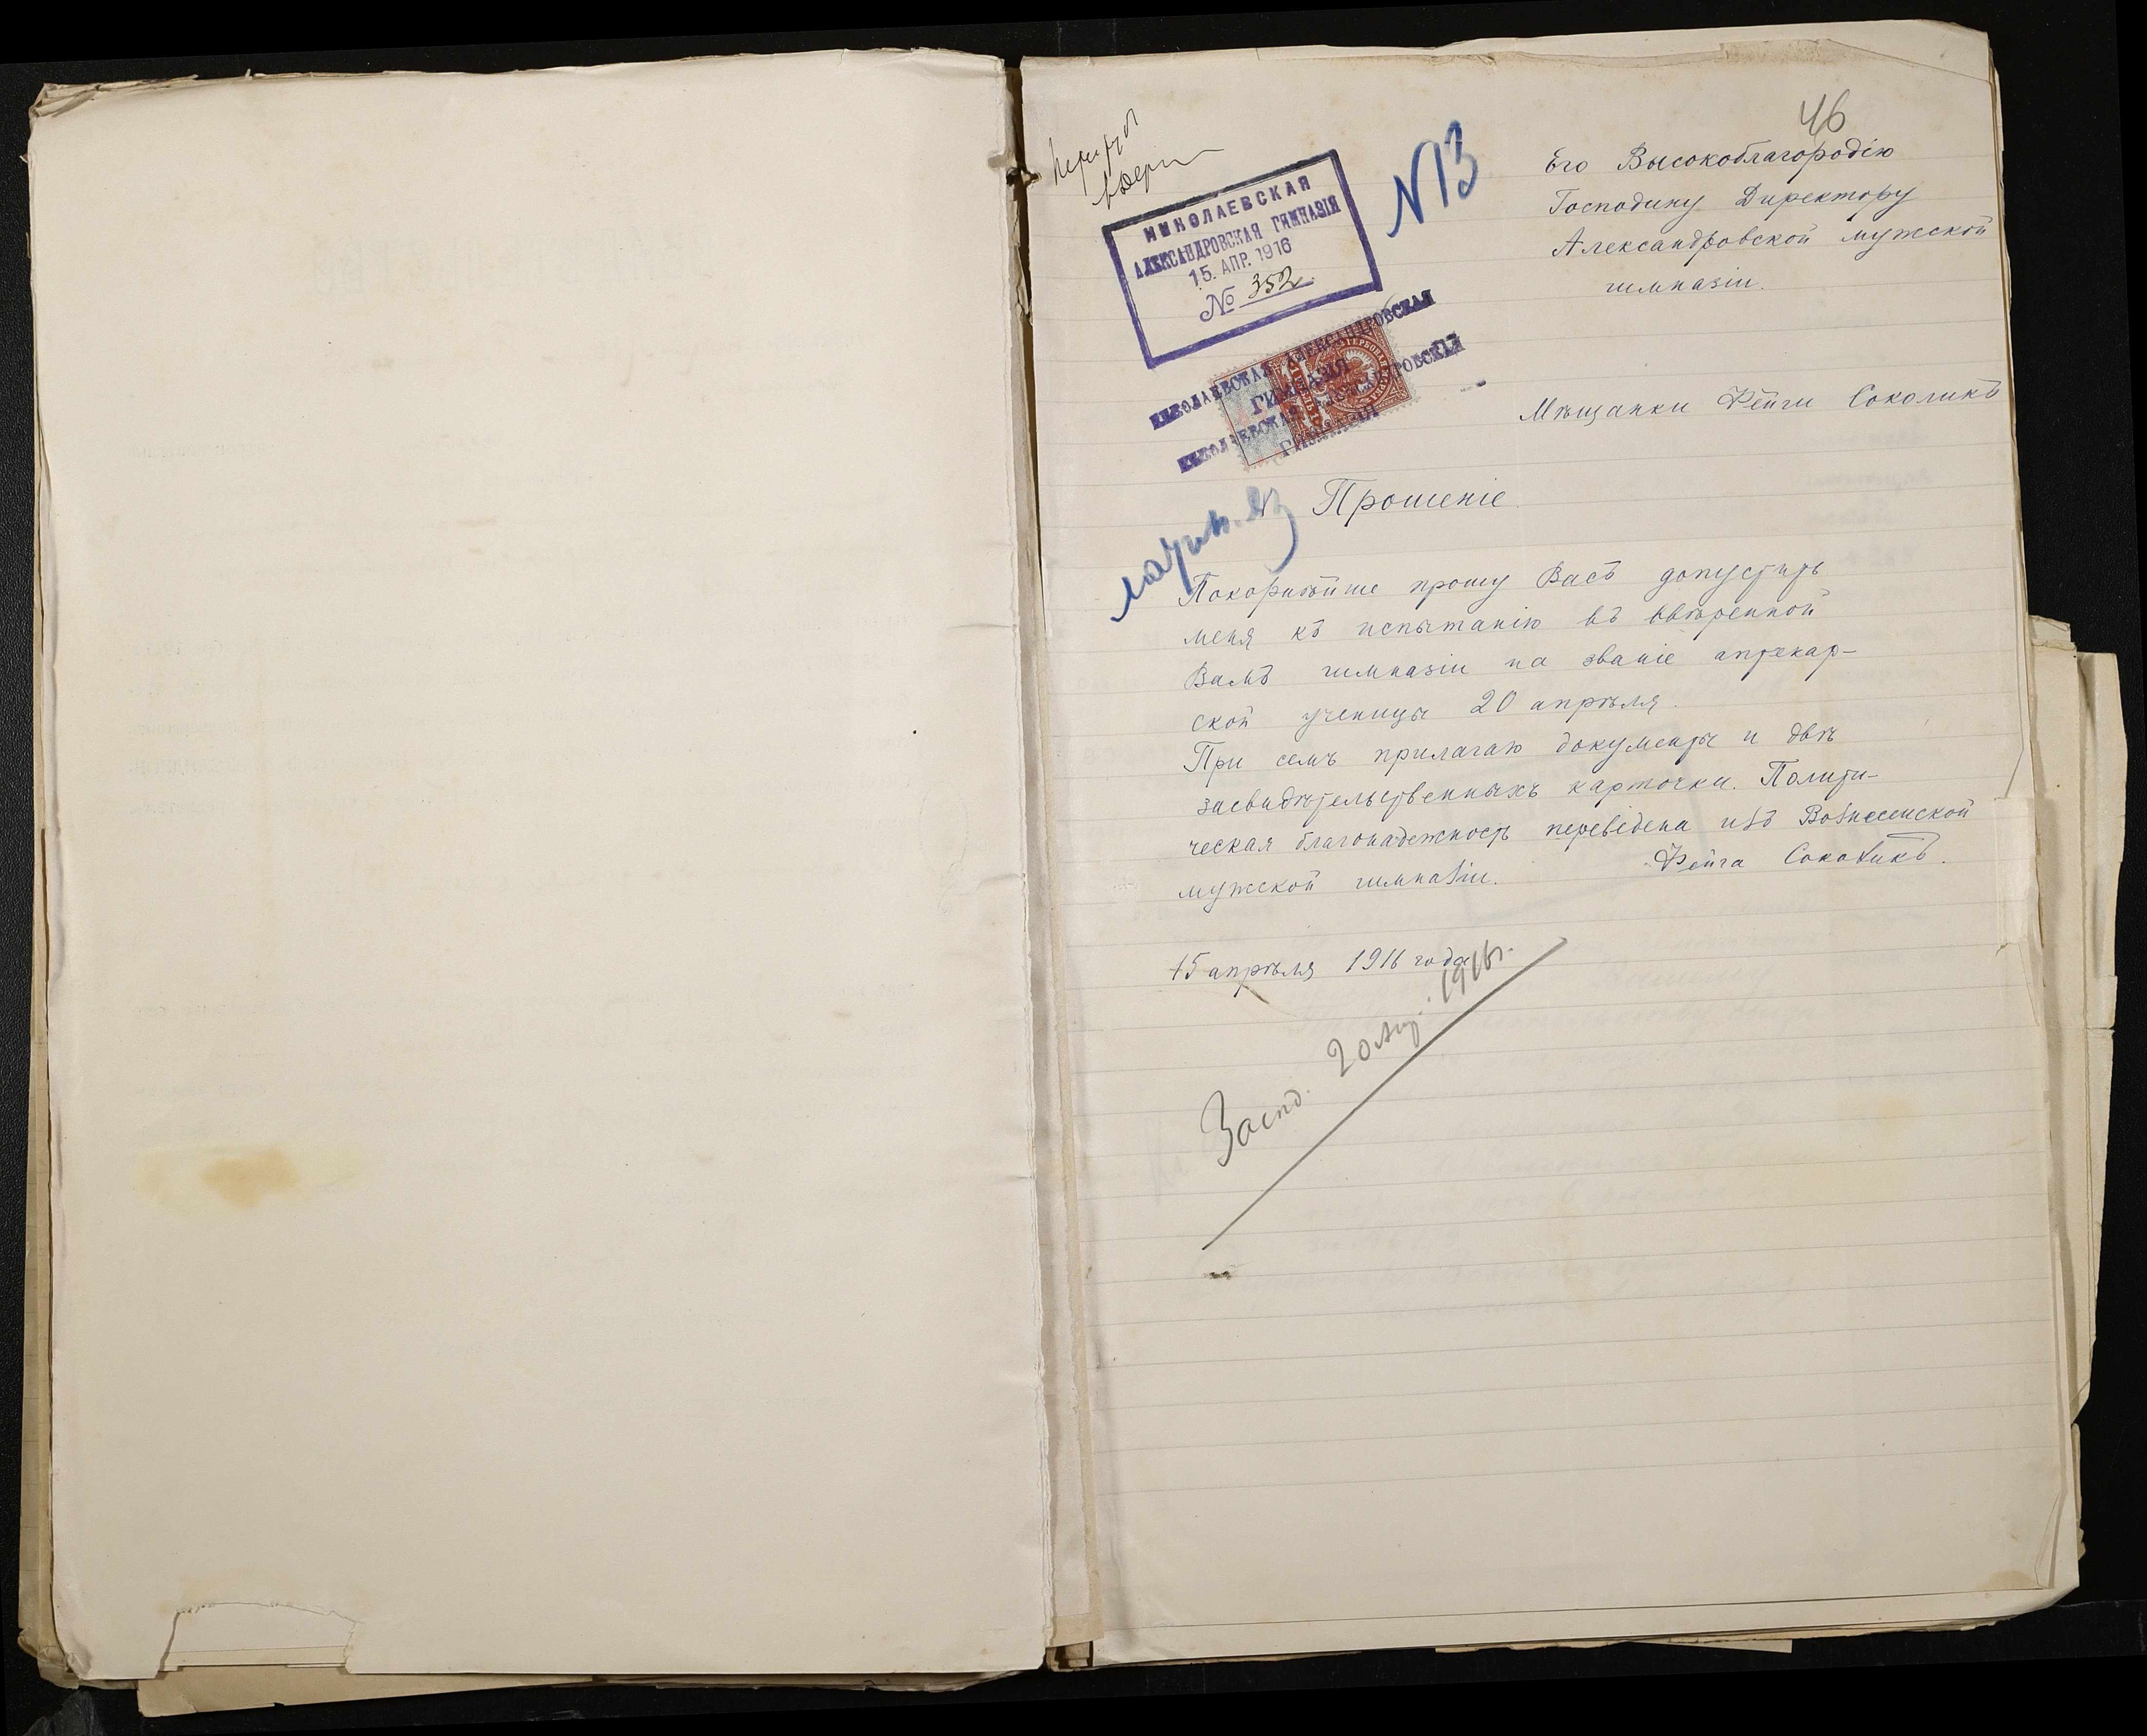 46
N13
НИКОЛАЕВСКАЯ
АЛЕКСАНДРОВСКАЯ ГИМНАЗІЯ
15. АПР. 1916
№ 352
Его Высокоблагородію
Господину Директору
Александровской мужской
гимназіи.
НИКОЛАЕВСКАЯ АЛЕКСАНДРОВСКАЯ
ГИМНАЗІЯ
НИКОЛАЕВСКАЯ АЛЕКСАНДРОВСКАЯ
ГИМНАЗІЯ
Мѣщанки Фейги Соколикъ
Прошеніе.
Покорнѣйше прошу Васъ допустить
меня къ испытанію въ ввѣренной
Вамъ гимназіи на званіе аптекар-
ской ученицы 20 апрѣля.
При семъ прилагаю документы и двѣ
засвидѣтельственныхъ карточки. Полити-
ческая благонадежность переведена изъ Вознесенской
мужской гимназіи.
Фейга Соколикъ.
15 апрѣля 1916 года
20 Апр. 1916г.